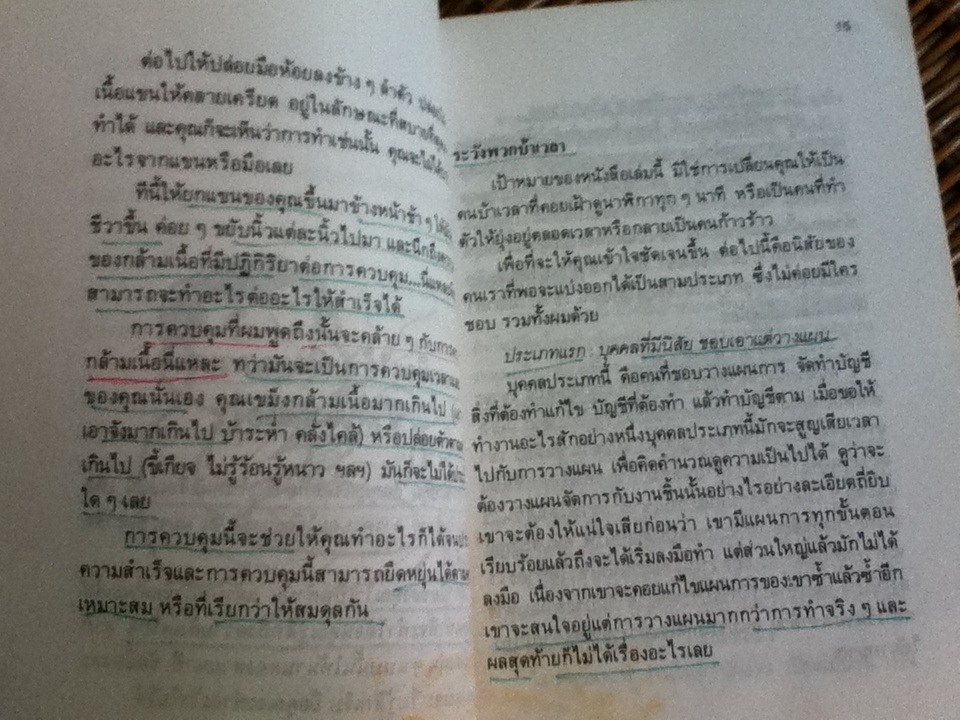 ต่อไปให้ปล่อยมือห้อยลงข้าง ๆ ลำตัว
เนื้อแขนให้คลายเครียด อยู่ในลักษณะที่สบายที่สุด
ทำได้ และคุณก็จะเห็นว่าการทำเช่นนั้น คุณจะไม่ได้
อะไรจากแขนหรือมือเลย
ทีนี้ให้ยกแขนของคุณขึ้นมาข้างหน้าช้า ๆ
ชีวาขึ้น ค่อย ๆ ขยับนิ้วแต่ละนิ้วไปมา และนึกถึง
ของกล้ามเนื้อที่มีปฏิกิริยาต่อการควบคุม...นี่แหละ
สามารถจะทำอะไรต่ออะไรให้สำเร็จได้
การควบคุมที่ผมพูดถึงนั้นจะคล้าย ๆ กับการ
กล้ามเนื้อนี่แหละ ทว่ามันจะเป็นการควบคุมเวลา
ของคุณนั่นเอง คุณเขม็งกล้ามเนื้อมากเกินไป
เอาจังมากเกินไป บ้าระห่ำ คลั่งไคล้) หรือปล่อยตัว
เกินไป (ขี้เกียจ ไม่รู้ร้อนรู้หนาว ฯลฯ) มันก็จะไม่ได้
ใด ๆ เลย
การควบคุมนี้จะช่วยให้คุณทำอะไรก็ได้จน
ความสำเร็จและการควบคุมนี้สามารถยืดหยุ่นได้ตาม
เหมาะสม หรือที่เรียกว่าให้สมดุลกัน
15
ระวังพวกบ้าเวลา
เป้าหมายของหนังสือเล่มนี้ มิใช่การเปลี่ยนคุณให้เป็น
คนบ้าเวลาที่คอยเฝ้าดูนาฬิกาทุก ๆ นาที หรือเป็นคนที่ทำ
ตัวให้ยุ่งอยู่ตลอดเวลาหรือกลายเป็นคนก้าวร้าว
เพื่อที่จะให้คุณเข้าใจชัดเจนขึ้น ต่อไปนี้คือนิสัยของ
คนเราที่พอจะแบ่งออกได้เป็นสามประเภท ซึ่งไม่ค่อยมีใคร
ชอบ รวมทั้งผมด้วย
ประเภทแรก : บุคคลที่มีนิสัย ชอบเอาแต่วางแผน
บุคคลประเภทนี้ คือคนที่ชอบวางแผนการ จัดทำบัญชี
สิ่งที่ต้องทำแก้ไข บัญชีที่ต้องทำ แล้วทำบัญชีตาม เมื่อขอให้
ทำงานอะไรสักอย่างหนึ่งบุคคลประเภทนี้มักจะสูญเสียเวลา
ไปกับการวางแผน เพื่อคิดคำนวณดูความเป็นไปได้ ดูว่าจะ
ต้องวางแผนจัดการกับงานชิ้นนั้นอย่างไรอย่างละเอียดถี่ยิบ
เขาจะต้องให้แน่ใจเสียก่อนว่า เขามีแผนการทุกขั้นตอน
เรียบร้อยแล้วถึงจะได้เริ่มลงมือทำ แต่ส่วนใหญ่แล้วมักไม่ได้
ลงมือ เนื่องจากเขาจะคอยแก้ไขแผนการของเขาซ้ำแล้วซ้ำอีก
เขาจะสนใจอยู่แต่การวางแผนมากกว่าการทำจริง ๆ และ
ผลสุดท้ายก็ไม่ได้เรื่องอะไรเลย